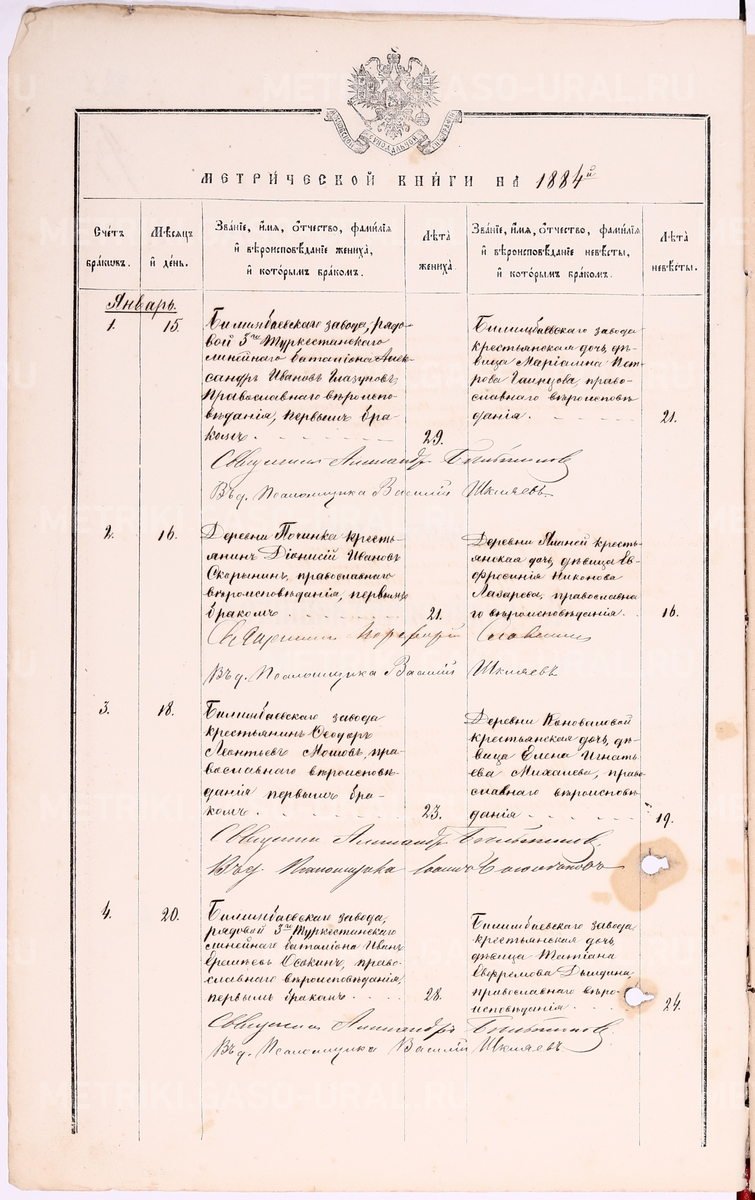 МЕТРИЧЕСКОЙ КНИГИ НА 1884й
Счетъ браковъ.
Мѣсяцъ и день.
Званіе, имя, отчество, фамилія и вѣроисповѣданіе жениха, и которымъ бракомъ.
Лѣта жениха.
Званіе, имя, отчество, фамилія и вѣроисповѣданіе невѣсты, и которымъ бракомъ.
Лѣта невѣсты.
Январь.
1. 15.
Билимбаевскаго завода, рядо-
вой 3го Туркестанскаго
линейнаго баталіона Алек-
сандръ Ивановъ Глазуновъ,
Православнаго вѣроиспо-
вѣданія, первымъ бра-
комъ. 29.
Билимбаевскаго завода
крестьянская дочь, дѣ-
вица Маріамна Пет-
рова, право-
славнаго вѣроисповѣ-
данія. 21.
Священникъ Александръ
Въ д. Псаломщика Василій Шкляевъ.
2. 16.
Деревни Починка кресть-
янинъ Діонисій Ивановъ
Скорынинъ, православнаго
вѣроисповѣданія, первымъ
бракомъ. 21.
Деревни кресть-
янская дочь, дѣвица Ев-
фросинія Никонова
Лазарева, православна-
го вѣроисповѣданія. 16.
Священникъ Порфирій Славнинъ
Въ д. Псаломщика Василій Шкляевъ
3. 18.
Билимбаевскаго завода
крестьянинъ Ѳеодоръ
Леонтьевъ, пра-
вославнаго вѣроисповѣ-
данія первымъ бра-
комъ. 23.
Деревни Коноваловой
крестьянская дочь, дѣ-
вица Елена Игнать-
ева Михалева, право-
славнаго вѣроисповѣ-
данія. 19.
Священникъ Александръ
Въ д. Псаломщика
4. 20.
Билимбаевскаго завода,
рядовой 3го Туркестанскаго
линейнаго баталіона Иванъ
Осокинъ, право-
славнаго вѣроисповѣданія,
первымъ бракомъ. 28.
Билимбаевскаго завода,
крестьянская дочь,
дѣвица Татіана
Евфремова Дылдина,
православнаго вѣро-
исповѣданія. 24.
Священникъ Александръ
Въ д. Псаломщика Василій Шкляевъ.
METRIKI.GASO-URAL.RU